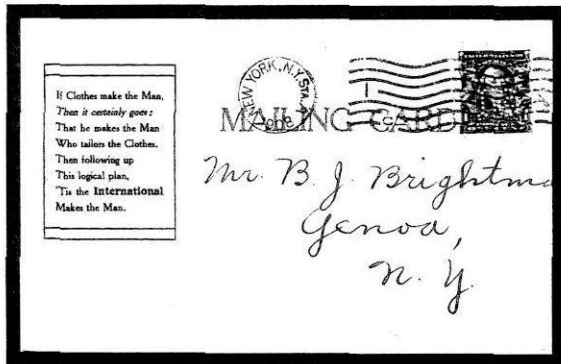 If Clothes make the Man,
Then it certainly goes:
That he makes the Man
Who tailors the Clothes.
Then following up
This logical plan,
'Tis the International
Makes the Man.
NEW YORK, N.Y. STA.
1908
MAILING CARD
Mr. B. J. Brightma
Genoa,
N. Y.